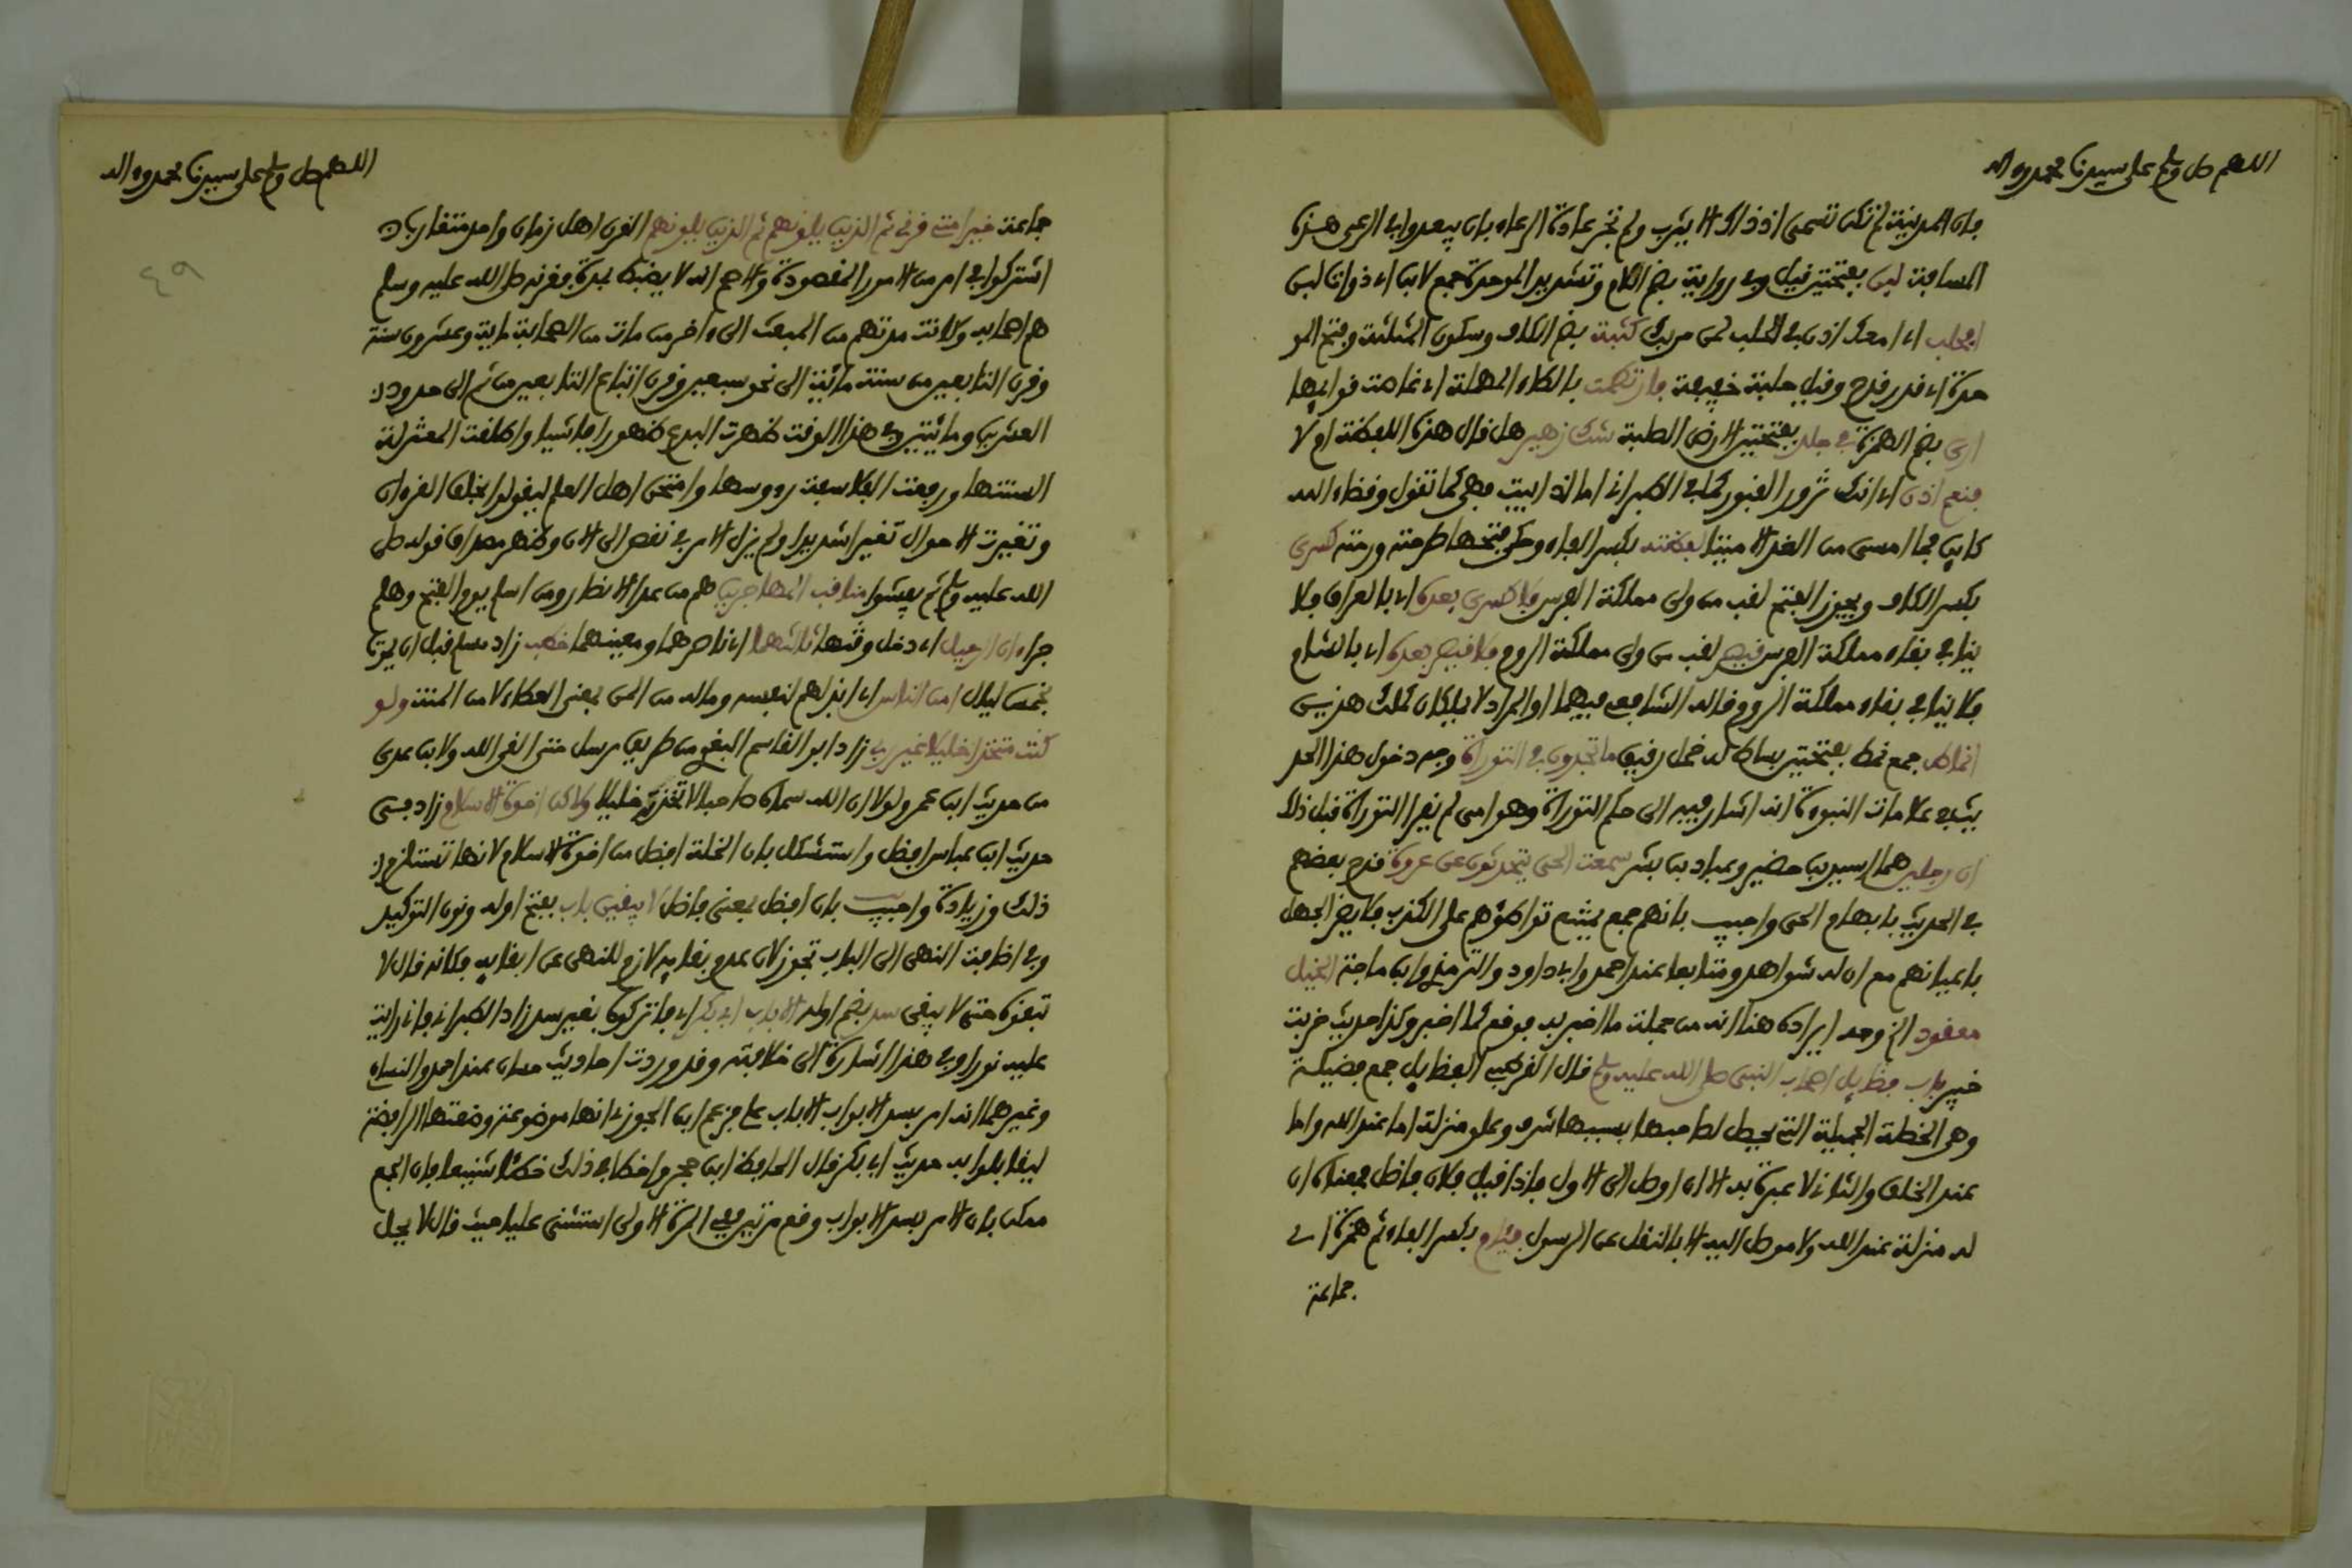 اللهم صل وسلم على سيدنا محمد وءاله
فإن المدينة لم تكن تسمى إذ ذاك إلا يثرب ولم تجر عادة الرعاء بأن يبعدوا في الرعي هذه
المسافة لبن بفتحتين قيل وفي رواية بضم اللام وتشديد الموحدة جمع لابن أي ذوات لبن
أفحلب أي أمعك إذن في الحلب لمن مر بك كثبة بضم الكاف وسكون المثلثة وفتح المو
حدة أي قدر قدح وقيل حلبة خفيفة فارتطمت بالطاء المهملة أي غاصت قوائمها
أرى بضم الهمزة في جلد بفتحتين الأرض الصلبة شك زهير هل قال هذه اللفظة أم لا
فنعم إذن أي إنك تزور القبور كما في الطبراني أما إذ أبيت فهي كما تقول وقضاء الله
كاين فما أمسى من الغد إلا ميتا لفظته بكسر الفاء وحكي فتحها طرحته ورمته كسرى
بكسر الكاف ويجوز الفتح لقب من ولي مملكة الفرس فلا كسرى بعده أي بالعراق فلا
ينافي بقاء مملكة الفرس قيصر لقب من ولي مملكة الروم فلا قيصر بعده أي بالشام
فلا ينافي بقاء مملكة الروم قاله الشافعي فيهما أو المراد لا يملكان كملك هذين
أنماط جمع نمط بفتحتين بساط له خمل رقيق ما تجدون في التوراة وجه دخول هذا الحد
يث في علامات النبوة أنه أشار فيه إلى حكم التوراة وهو أمي لم يقرأ التوراة قبل ذلك
أن رجلين هما أسيد بن حضير وعباد بن بشر سمعت الحي يتحدثون عن عروة قدح بعضهم
في الحديث بابهام الحي وأجيب بأنهم جمع يمتنع تواطؤهم على الكذب فلا يضر الجهل
بأعيانهم مع أن له شواهد ومتابعا عند أحمد وأبي داود والترمذي وابن ماجة الخيل
معقود الخ وجه إيراده هنا أنه من جملة ما أخبر به فوقع كما أخبر وكذا حديث خربت
خيبر باب فضايل أصحاب النبي صلى الله عليه وسلم قال القرطبي الفضايل جمع فضيلة
وهي الخصلة الجميلة التي يحصل لصاحبها بسببها شرف وعلو منزلة إما عند الله وإما
عند الخلق والثاني لا عبرة به إلا إن أوصل إلى الأول فإذا قيل فلان فاضل فمعناه أن
له منزلة عند الله ولا موصل إليه إلا بالنقل عن الرسول فئام بكسر الفاء ثم همزة أي
جماعة
اللهم صل وسلم على سيدنا محمد وءاله
٤٩
جماعة خير أمتي قرني ثم الذين يلونهم ثم الذين يلونهم القرن أهل زمان واحد متقاربان
اشتركوا في أمر من الأمور المقصودة والأصح أنه لا يضبط بمدة فقرنه صلى الله عليه وسلم
هم أصحابه وكانت مدتهم من المبعث إلى ءاخر من مات من الصحابة ماية وعشرون سنة
وقرن التابعين من سنة مائة إلى نحو سبعين وقرن اتباع التابعين من ثم إلى حدود
العشرين ومائتين وفي هذا الوقت ظهرت البدع ظهورا فاشيا وأطلقت المعتزلة
السنتها ورفعت الفلاسفة رءوسها وامتحن أهل العلم ليقولوا بخلق القرءان
وتغيرت الأحوال تغيرا شديدا ولم يزل الأمر في نقص إلى الآن وظهر مصداق قوله صلى
الله عليه وسلم ثم يفشوا مناقب المهاجرين هم من عدا الأنصار ومن أسلم يوم الفتح وهلم
جرا حين ارتحل أي دخل وقتها ثالثهما أي ناصرهما ومعينهما خطب زاد مسلم قبل أن يموت
بخمس ليال أمن الناس أي أبذلهم لنفسه وماله من المن بمعنى العطاء لا من المنة ولو
كنت متخذا خليلا غير ربي زاد أبو القاسم البغوي من طريق مرسل حتى القى الله ولابن عدي
من حديث ابن عمر ولولا أن الله سماه صاحبا لاتخذته خليلا ولكن أخوة الإسلام زاد في
حديث ابن عباس أفضل واستشكل بأن الخلة أفضل من أخوة الإسلام لأنها تستلزم
ذلك وزيادة وأجيب بأن أفضل بمعنى فاضل لا يبقين باب بفتح أوله ونون التوكيد
وفي إضافة النهي إلى الباب تجوز لأن عدم بقايه لازم للنهي عن إبقايه فكأنه قال لا
تبقوه حتى لا يبقى سد بضم أوله إلا باب أبي بكر أي فاتركوه بغير سد زاد الطبراني فإني رأيت
عليه نورا وفي هذا إشارة إلى خلافته وقد وردت أحاديث حسان عند أحمد والنساي
وغيرهما أنه أمر بسد الأبواب إلا باب علي فزعم ابن الجوزي أنها موضوعة وضعتها الرافضة
ليقابلوا به حديث أبي بكر قال الحافظ ابن حجر وأخطأ في ذلك خطئا شنيعا فإن الجمع
ممكن بأن الأمر بسد الأبواب وقع مرتين ففي المرة الأولى استثنى عليا حيث قال لا يحل